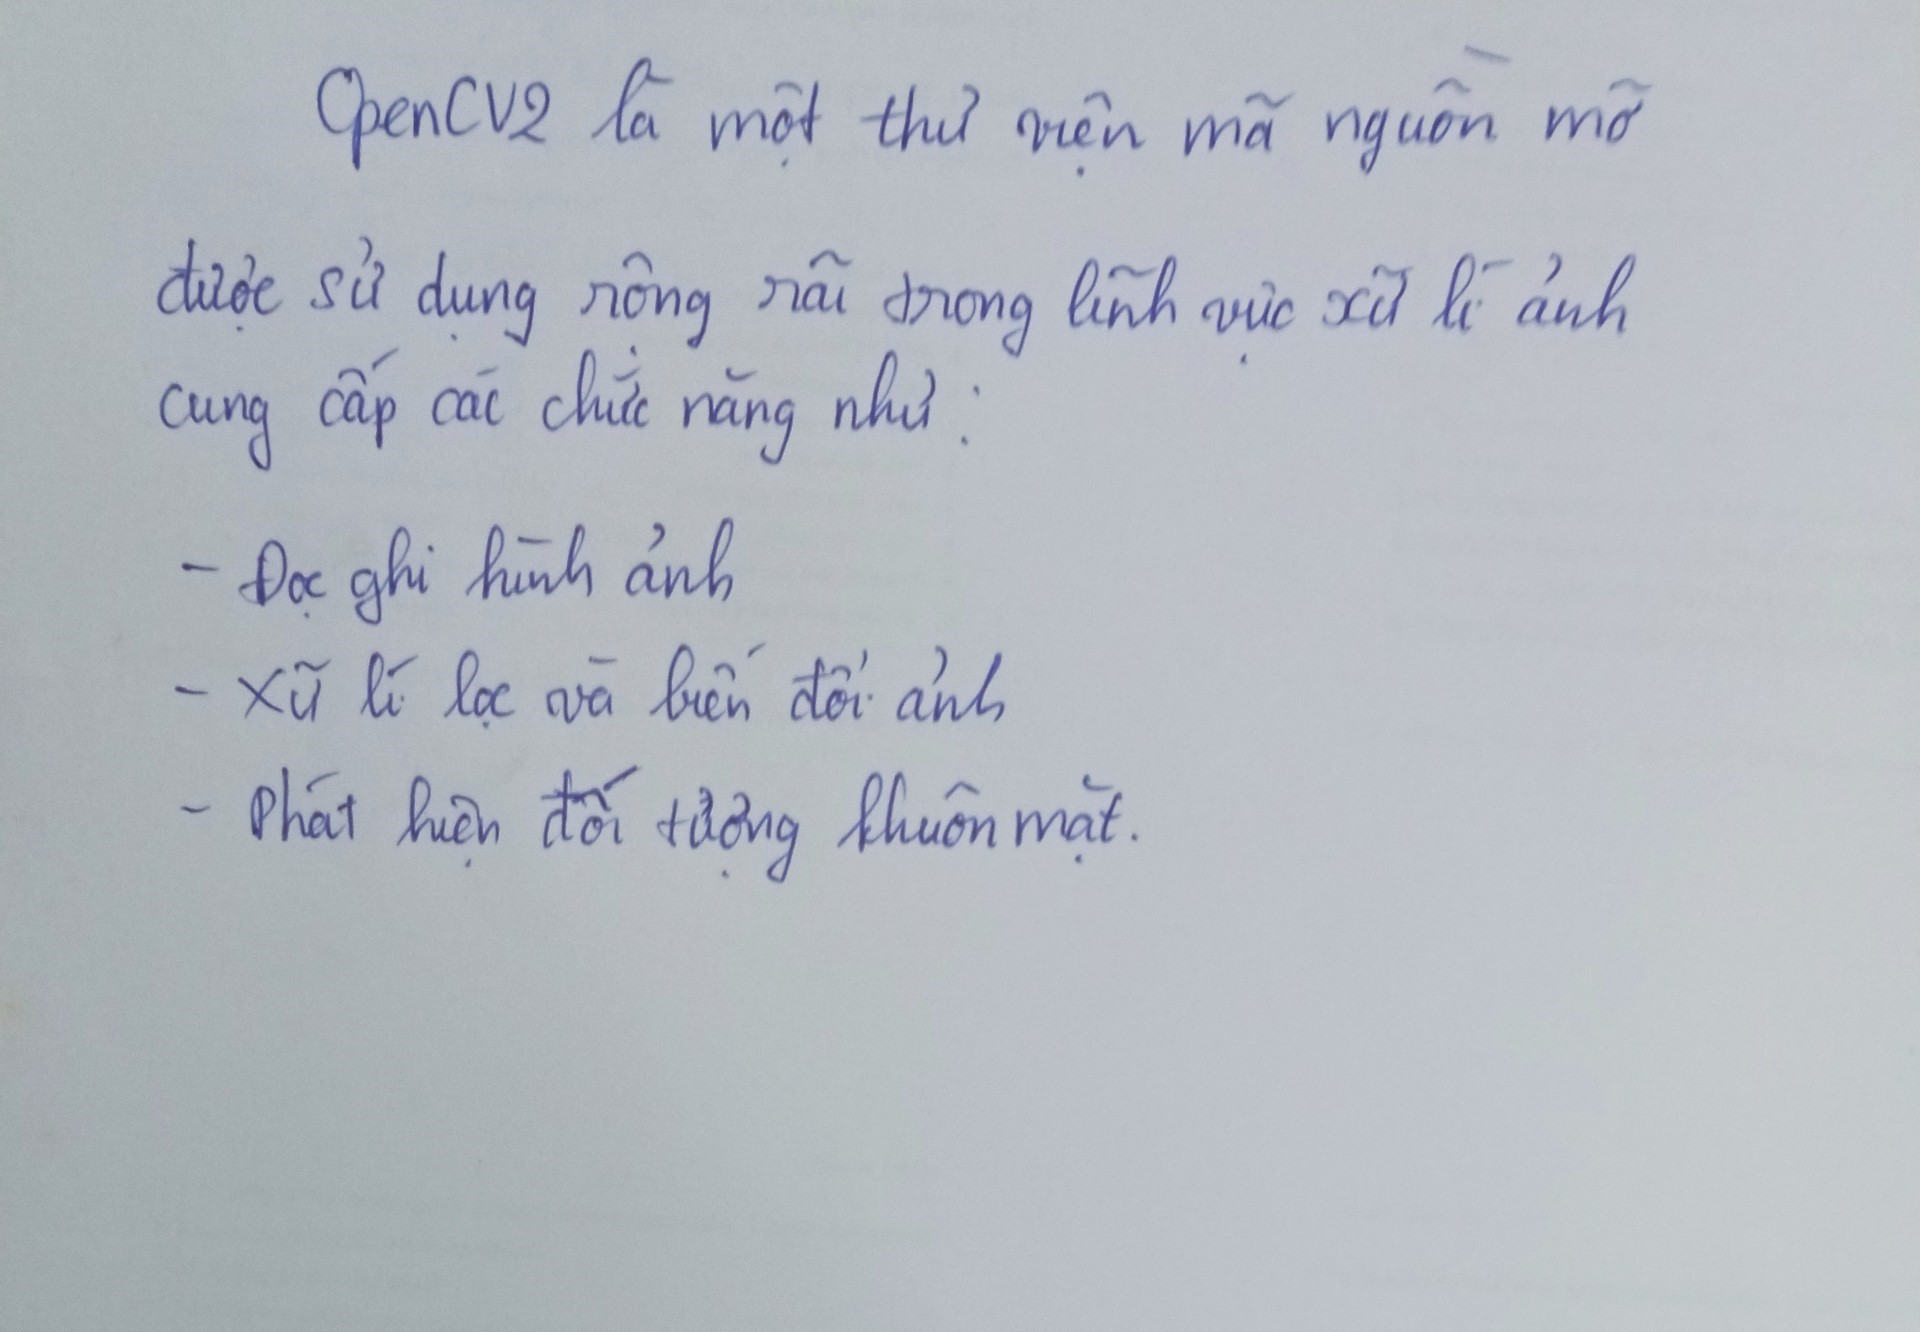 OpenCV2 là một thư viện mã nguồn mỡ
được sử dụng rộng rãi trong lĩnh vực xữ lí ảnh
cung cấp các chức năng như:
- Đọc ghi hình ảnh
- Xữ lí lọc và biến đổi ảnh
- Phát hiện đối tượng khuôn mặt.